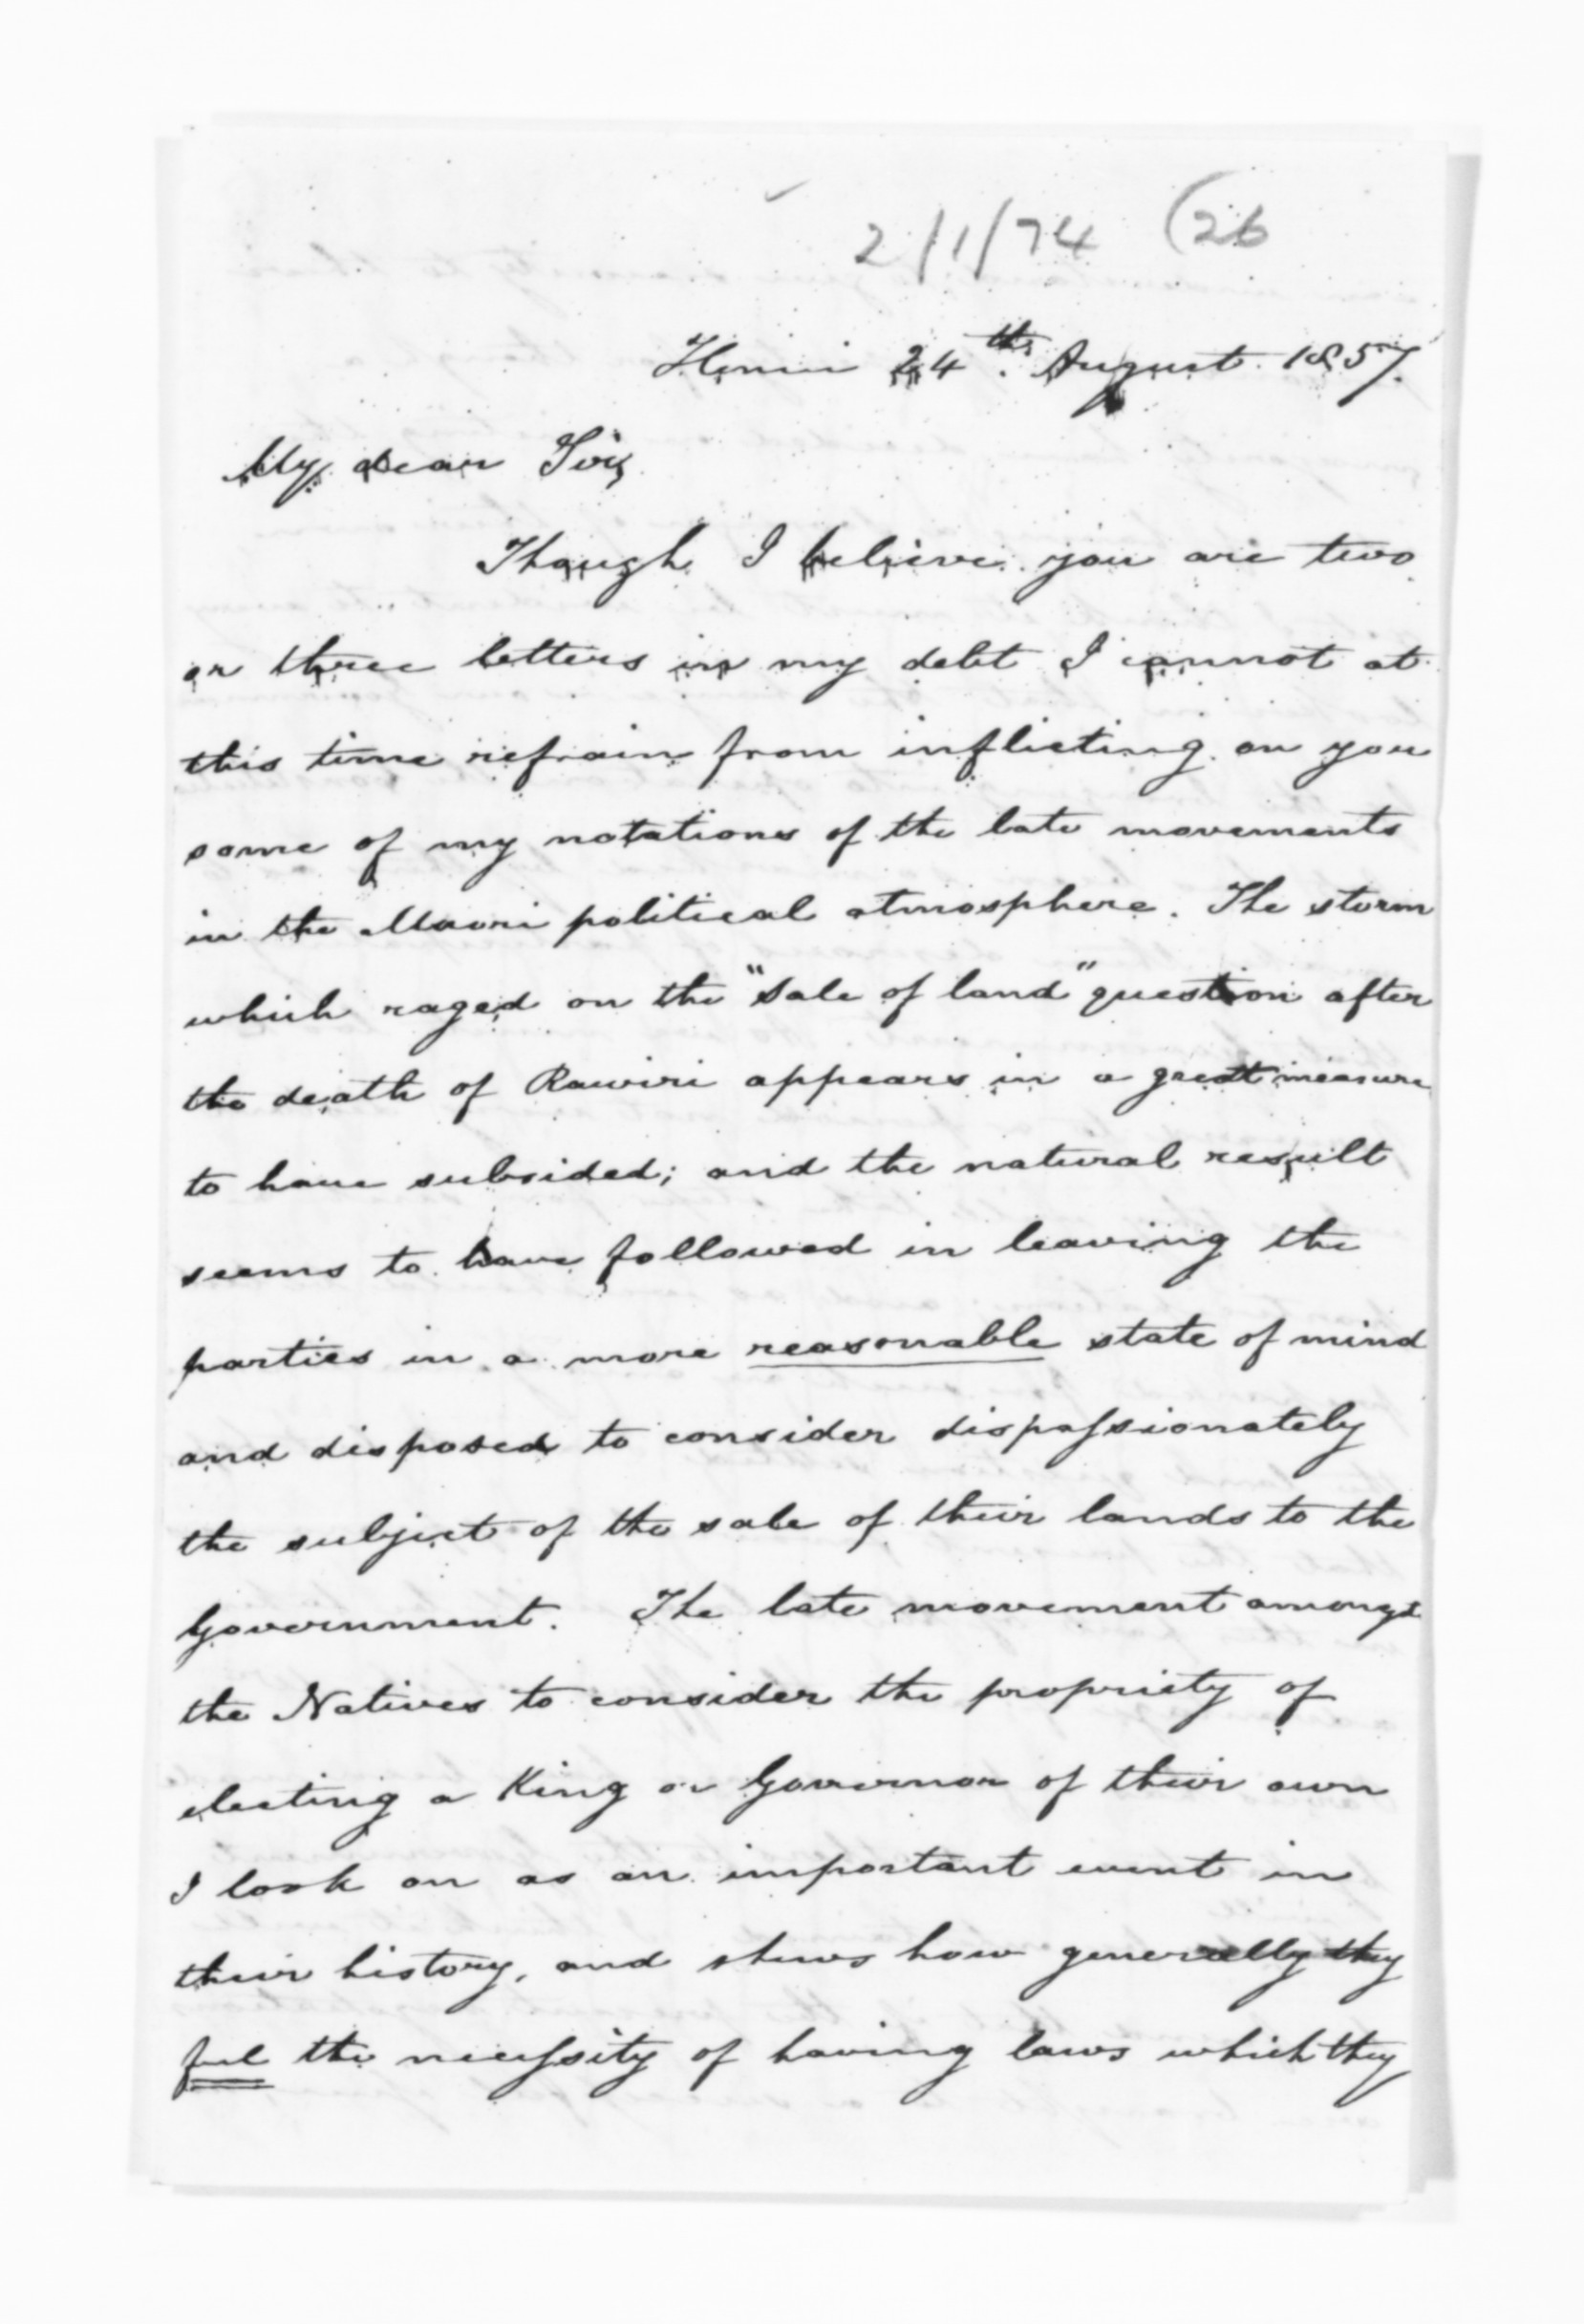 2/1/74 (26
Henui 24th. August 1857.
My dear Sir,
Though I believe you are two
or three letters in my debt I cannot at
this time refrain from inflicting on you
some of my notations of the late movements
in the Maori political atmosphere. The storm
which raged on the "Sale of land" question after
the death of Rawiri appears in a great measure
to have subsided; and the natural result
seems to have followed in leaving the
parties in a more reasonable state of mind
and disposed to consider dispassionately
the subject of the sale of their lands to the
Government. The late movement amongst
the Natives to consider the propriety of
electing a King or Governor of their own
I look on as an important event in
their history, and shews how generally they
feel the necessity of having laws which they